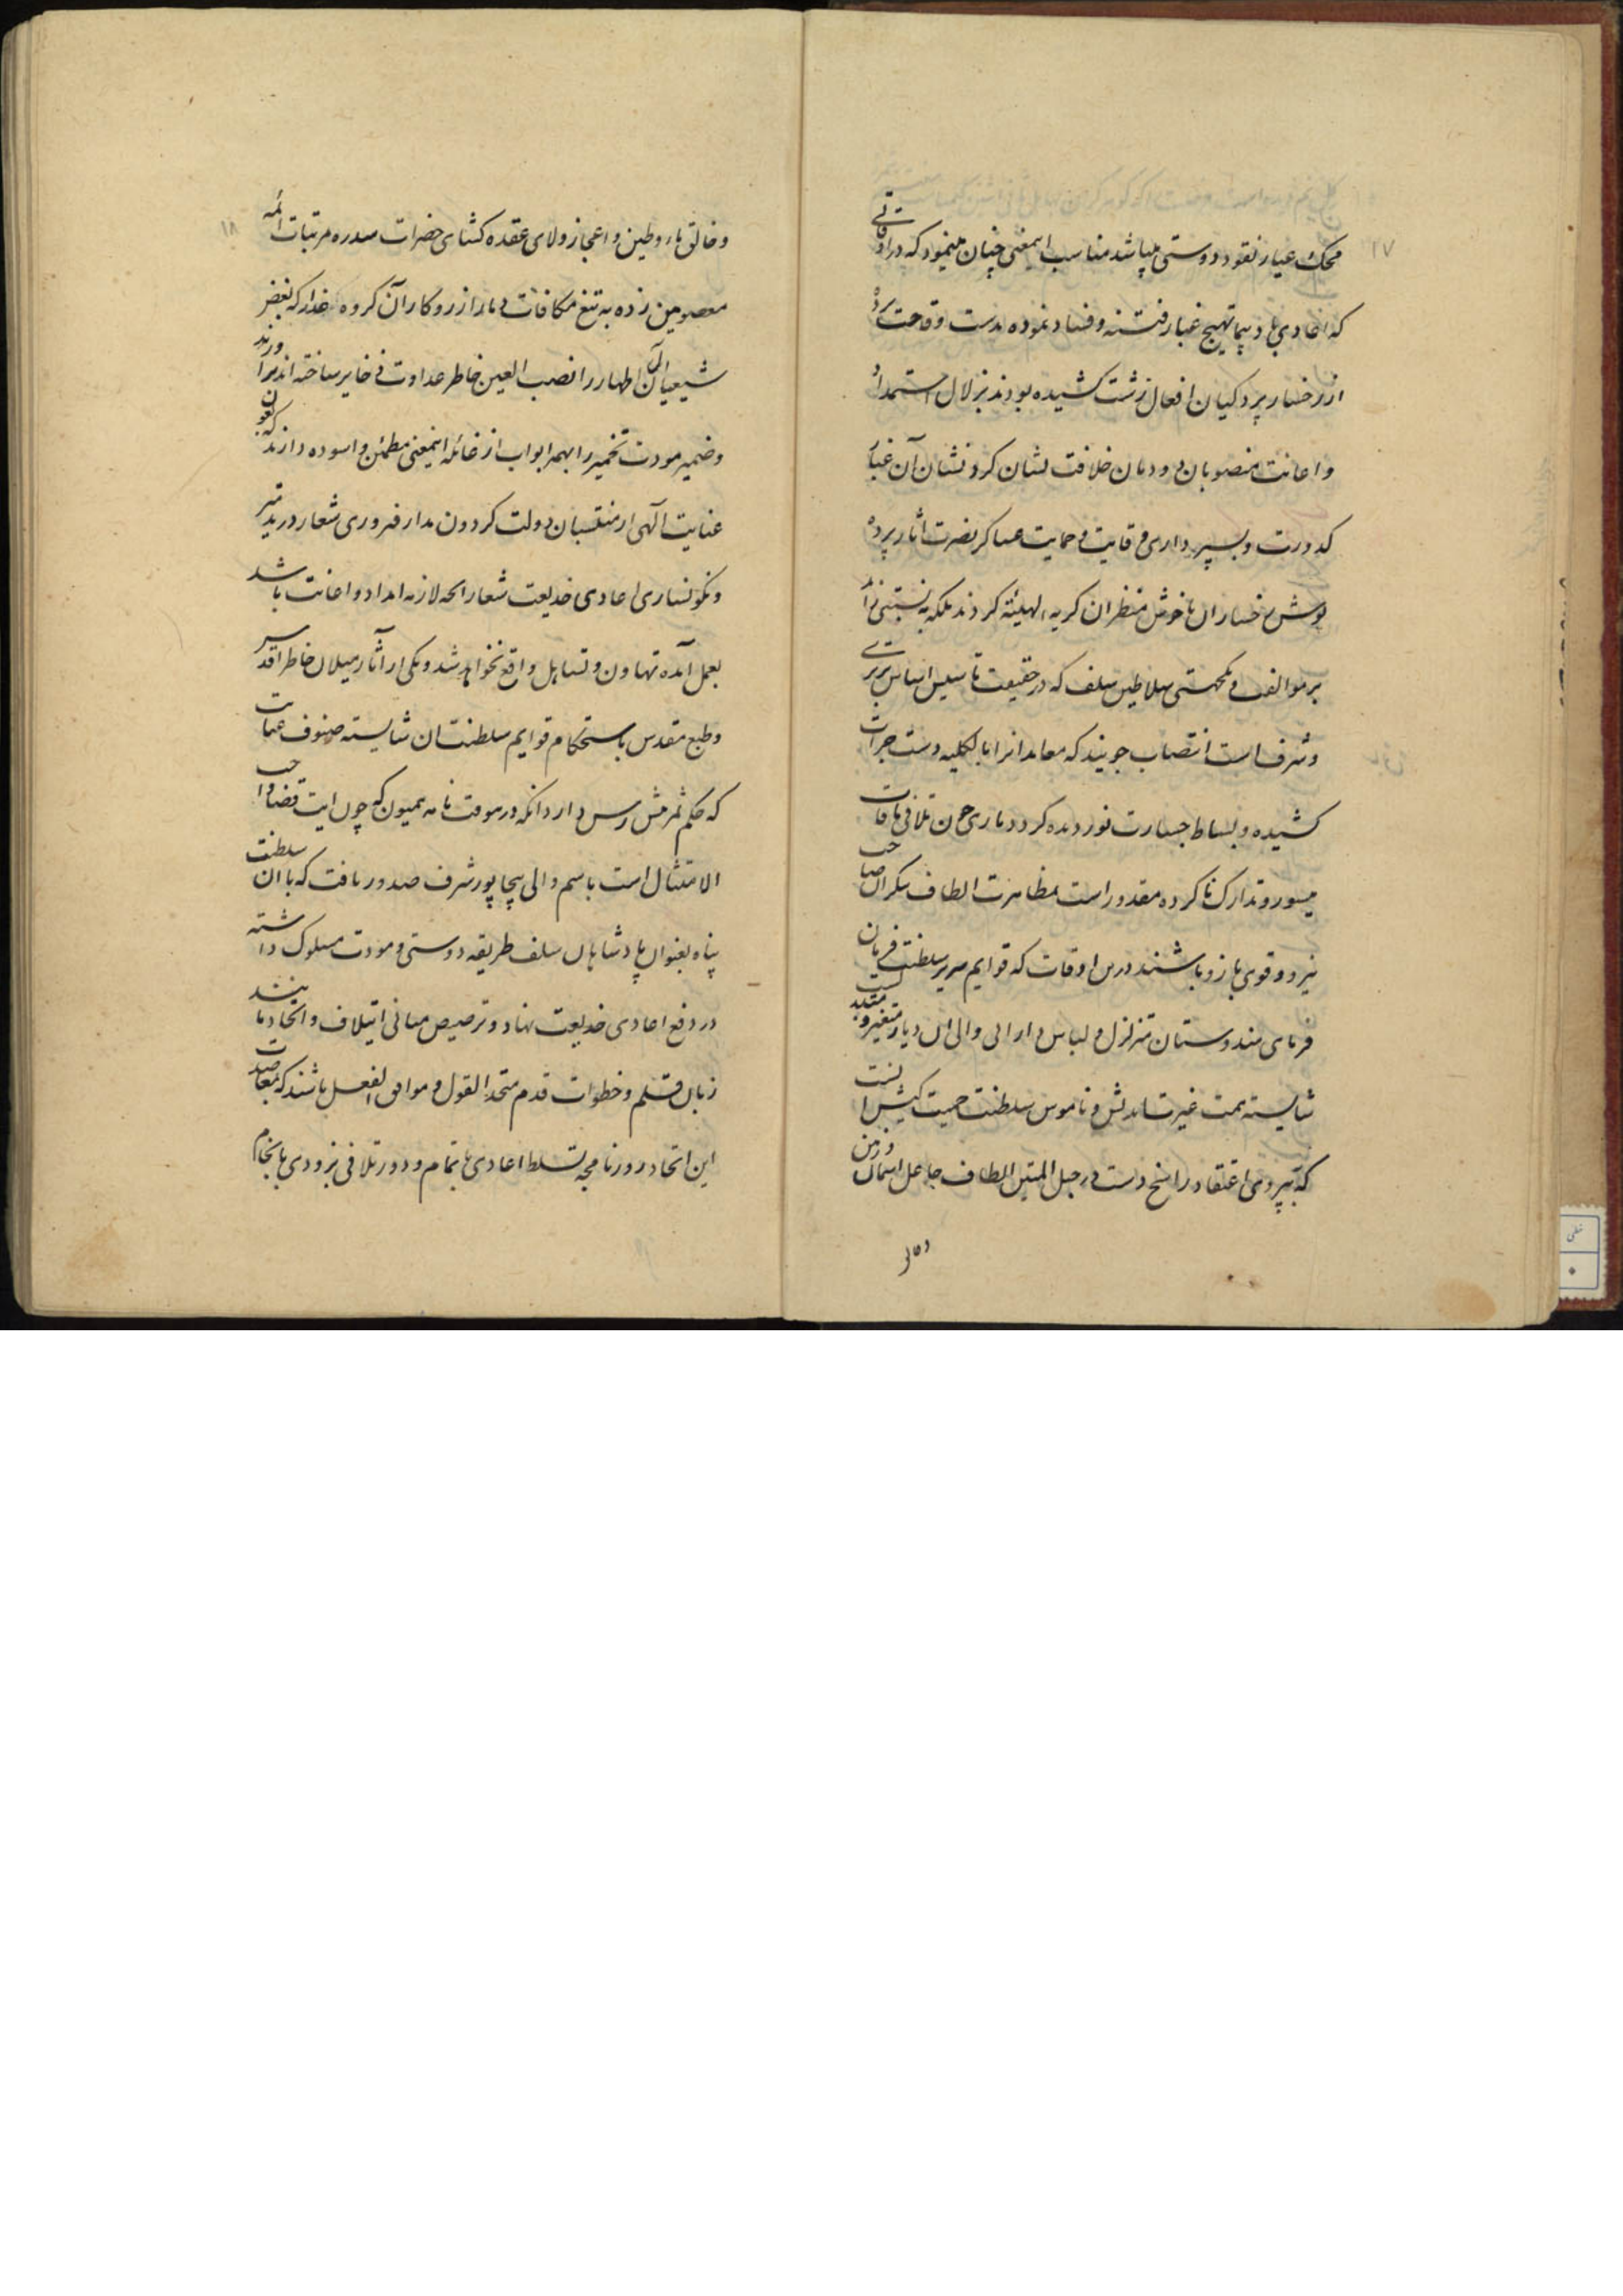 ۱۷
محک عیار نقود دوستی میباشد مناسب اینمعنی چنان مینمود که در اوقاتی
که اعادی باد پیما تهییج غبار فتنه و فساد نموده بدست وقاحت پرده
از رخسار پردکیان افعال زشت کشیده بودند بزلال استمداد
و اعانت منصوبان دودمان خلافت نشان کرد نشان آن غبار
کدورت و بسپرداری وقایت و حمایت عساکر نصرت آثار پرده
پوش رخساران ناخوش منظران کریه الهیئة کردند بلکه
بر موالفت و یکجهتی سلاطین سلف که در حقیقت تاسیس اساس برتری
و شرف است انتصاب جویند که معاندانرا بالکلیه دست جرات
کشیده و بساط جسارت نوردیده کردد باری چون تلافی مافات
میسور و تدارک ناکرده مقدور است بمظاهرت الطاف بیکران صاحب
نیرو و قوی بازو باشند درین اوقات که قوایم سریر سلطنت فرمان
فرمای هندوستان متزلزل و لباس دارائی والی ان دیار متغیر و متبدل
شایسته همت غیرت اندیش و ناموس سلطنت حمیت کیش
که به نیروی اعتقاد راسخ دست در حبل المتین الطاف جاعل اسمان و زمین
و خالق
۱۸
و خالق ماء و طین و اعجاز ولای عقده کشای حضرات سدره مرتبات ائمه
معصومین زده به تیغ مکافات دمار از روزکار آن کروه غدار که بغض
شیعیان آل اطهار را نصب العین خاطر عداوت ذخایر ساخته اند برآورند
و ضمیر مودت تخمیر را بهمه ابواب از غائله اینمعنی مطمئن و اسوده دارند که بعون
عنایت آلهی از منتسبان دولت کردون مدار فیروزی شعار در تدمیر
و نکونساری اعادی خدیعت شعار انچه لازمه امداد و اعانت باشد
بعمل آمده تهاون و تساهل واقع نخواهد شد و یکی از آثار میلان خاطر اقدس
و طبع مقدس باستحکام قوایم سلطنت ان شایسته صنوف عنایت
که حکم ثمر پیش رس دارد انکه در موقت نامه همیون که چون ایت قضا واجب
الامتثال است باسم والی بیجاپور شرف صدور یافت که با ان سلطنت
پناه بعنوان پادشاهان سلف طریقه دوستی و مودت مسلوک داشته
در دفع اعادی خدیعت نهاد و ترصیص مبانی ایتلاف و اتحاد مانند
زبان قلم و خطوات قدم متحد القول و موافق الفعل باشند که بمعاضدت
این اتحاد روزنامچه تسلط اعادی ناتمام و دور تلافی بزودی بانجام